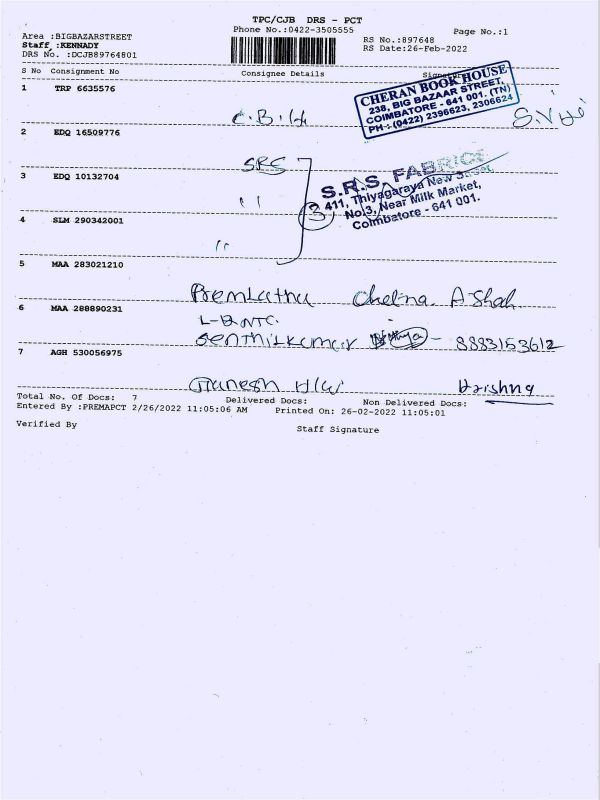 TPC/CJB DRS - PCT
Phone No.:0422-3505555
Page No.:1
Area :BIGBAZARSTREET
Staff :KENNADY
DRS No. :DCJB89764801
RS No.:897648
RS Date:26-Feb-2022
S No Consignment No Consignee Details Signature
CHERAN BOOK HOUSE
238, BIG BAZAAR STREET,
COIMBATORE - 641 001. (TN)
PH : (0422) 2396623, 2306624
1 TRP 6635576
C.B.H
2 EDQ 16509776
SRS
3 EDQ 10132704
S.R.S. FABRICS
411, Thiyagaraya New Street
No.3, Near Milk Market,
Coimbatore - 641 001.
3
"
4 SLM 290342001
"
5 MAA 283021210
Premlatha Chetna. A Shah
6 MAA 288890231
Senthilkumar - 8883153612
7 AGH 530056975
Ganesh Krishna
Total No. Of Docs: 7 Delivered Docs: Non Delivered Docs:
Entered By :PREMAPCT 2/26/2022 11:05:06 AM Printed On: 26-02-2022 11:05:01
Verified By Staff Signature